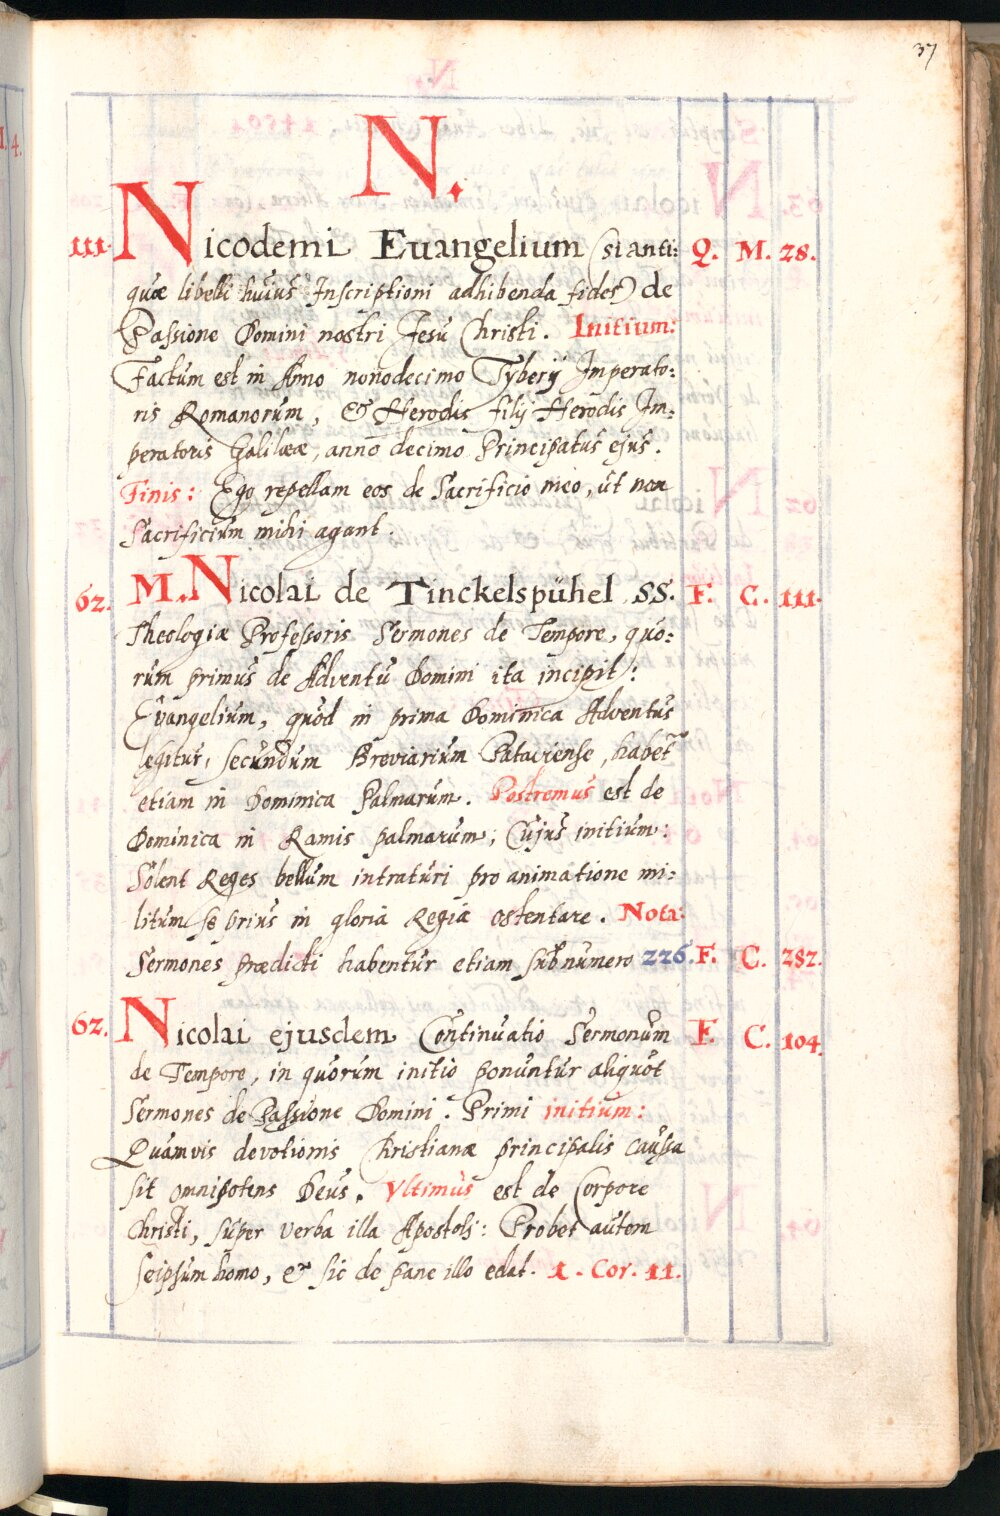 37
N.
111. Nicodemi Euangelium (si anti: Q. M. 28.
quæ libelli huius Inscriptioni adhibenda fides) de
Passione Domini nostri Jesu Christi. Initium:
Factum est in Anno nonodecimo Tyberij Imperato:
ris Romanorum, & Herodis filij Herodis Im:
peratoris Galilææ, anno decimo Principatus ejus.
Finis: Ego repellam eos de Sacrificio meo, ut non
Sacrificium mihi agant.
62. M. Nicolai de Tinckelspühel SS. F. C. 111.
Theologiæ Professoris Sermones de Tempore, quo:
rum primus de Adventu Domini ita incipit:
Evangelium, quod in prima Dominica Adventus
legitur, secundum Breviarium Pataviense, habet
etiam in Dominica Palmarum. Postremus est de
Dominica in Ramis palmarum; Cujus initium:
Solent Reges bellum intraturi pro animatione mi:
litum se prius in gloria Regia ostentare. Nota:
Sermones prædicti habentur etiam sub numero 226. F. C. 282.
62. Nicolai ejusdem Continuatio Sermonum F. C. 104.
de Tempore, in quorum initio ponuntur aliquot
Sermones de Passione Domini. Primi initium:
Quamvis devotionis Christianæ principalis caussa
sit omnipotens Deus. Vltimus est de Corpore
Christi, super verba illa Apostoli: Probet autem
seipsum homo, & sic de pane illo edat. 1. Cor. 11.